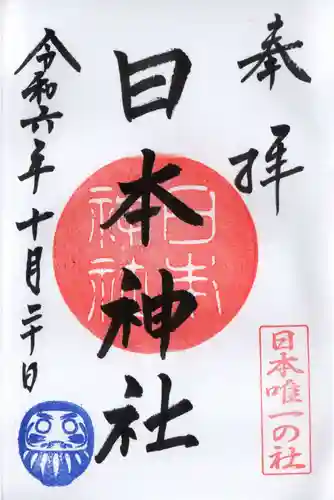 奉拝
日本神社
令和六年十月二十日
日本神社
日本唯一の社